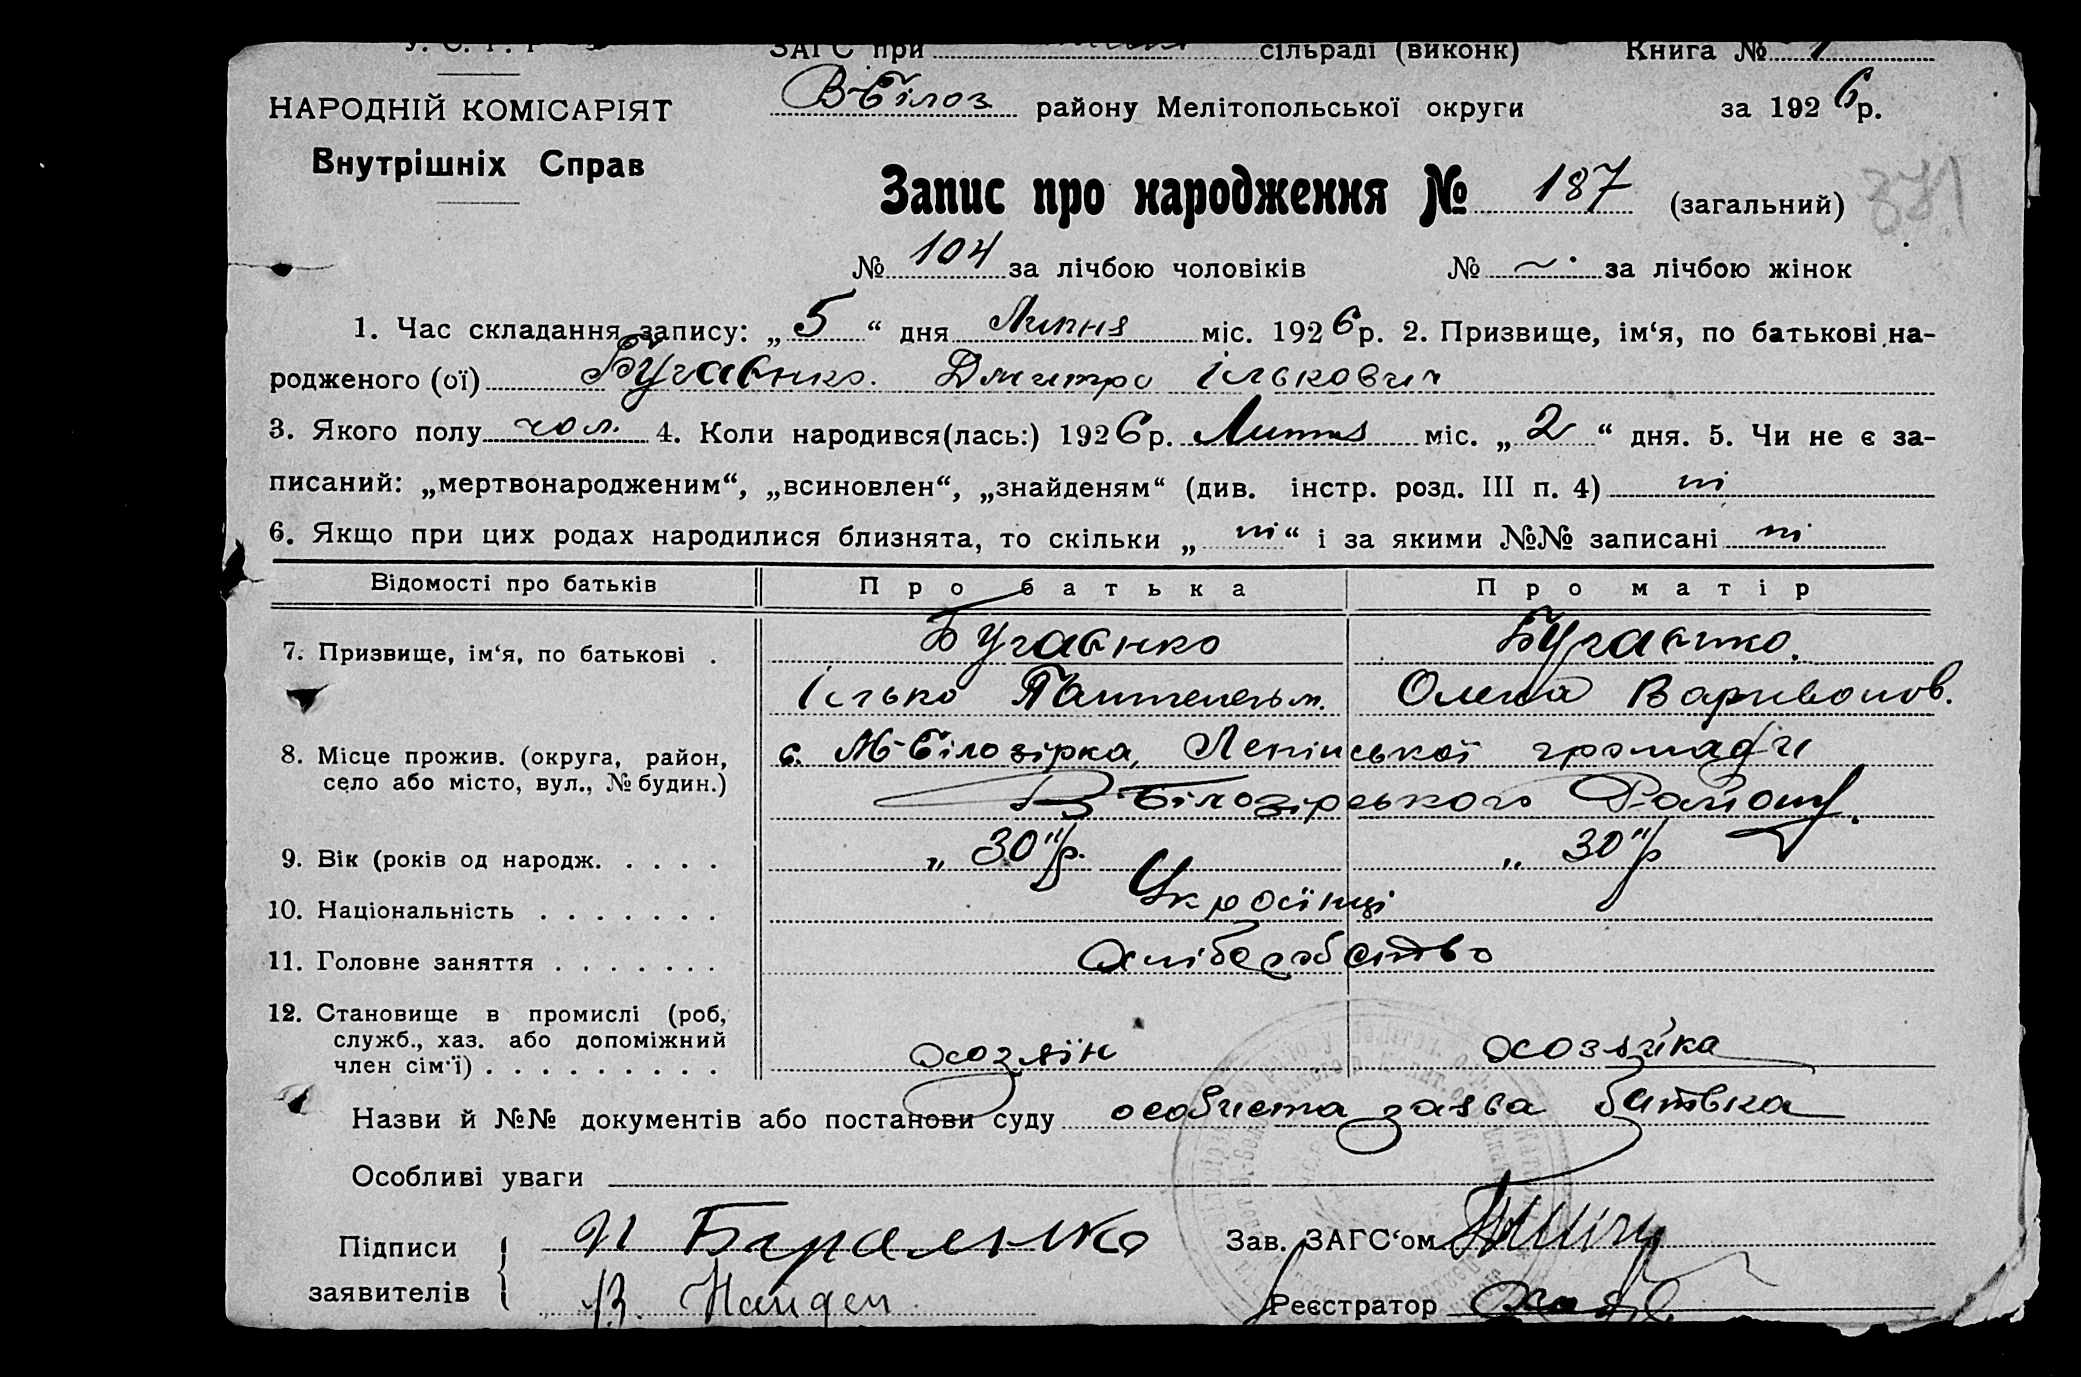 У. С. Р. Р
ЗАГС при сільраді (виконк) Книга № 1
НАРОДНІЙ КОМІСАРІЯТ В-Білоз району Мелітопольської округи за 1926р.
Внутрішніх Справ
Запис про народження № 187 (загальний) 381
№ 104 за лічбою чоловіків № ~ за лічбою жінок
1. Час складання запису: „5“ дня Липня міс. 1926р. 2. Призвище, ім‘я, по батькові на-
родженого (ої) Бугаенко. Дмитро Ількович
3. Якого полу чол. 4. Коли народився(лась:) 1926р. Липня міс. „2“ дня. 5. Чи не є за-
писаний: „мертвонародженим“, „всиновлен“, „знайденям“ (див. інстр. розд. III п. 4) ні
6. Якщо при цих родах народилися близнята, то скільки „ні“ і за якими №№ записані ні
Відомості про батьків Про батька Про матір
7. Призвище, ім‘я, по батькові . Бугаенко Бугаенко.
Ілько Олена
8. Місце прожив. (округа, район, с. М-Білозірка, Ленінської громади
село або місто, вул., № будин.) В-Білозірського Району.
9. Вік (років од народж. . . . . „ 30 р. „ 30 р
10. Національність . . . . . . . Українці
11. Головне заняття . . . . . . . Хліборобство
12. Становище в промислі (роб,
служб., хаз. або допоміжний хозяїн хозяйка
член сім‘ї) . . . . . . . . .
Назви й №№ документів або постанови суду особиста заява батька
Особливі уваги
Підписи И Зав. ЗАГС‘ом
заявителів В. Найден Реєстратор